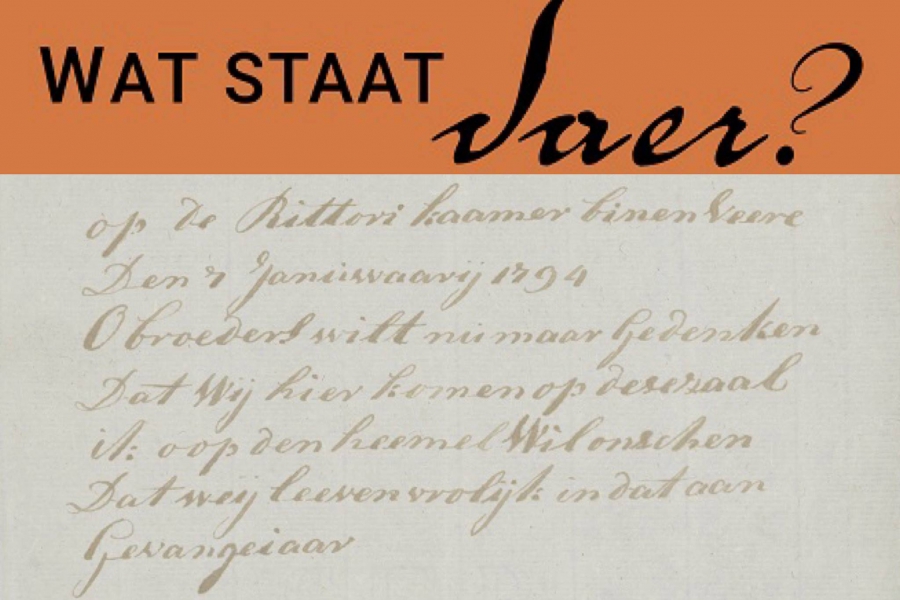 WAT STAAT daer?
op de Rittori kaamer binen Veere
Den 7 Januwaarij 1794
O broeders wilt nu maar Gedenken
Dat Wij hier komen op desezaal
ik oop den heemel Wil onschen
Dat weij leeven vrolijk in dat aan
Gevangeiaar